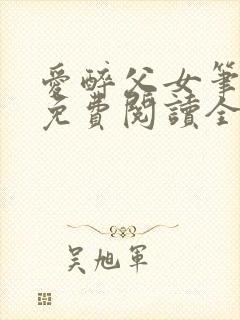 愛醉父女筆
免費閱讀全
吴旭軍